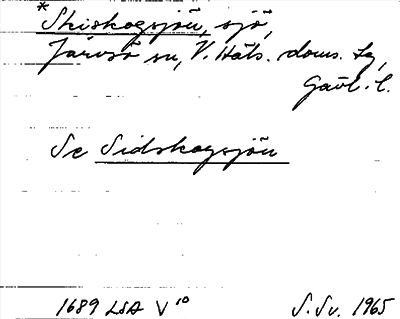 *Skiskogsjön, sjö,
Järvsö sn, V. Häls. doms. tg,
Gävl. l.
Se Sidskogsjön
1689 LSA V¹⁰ S.Sv. 1965